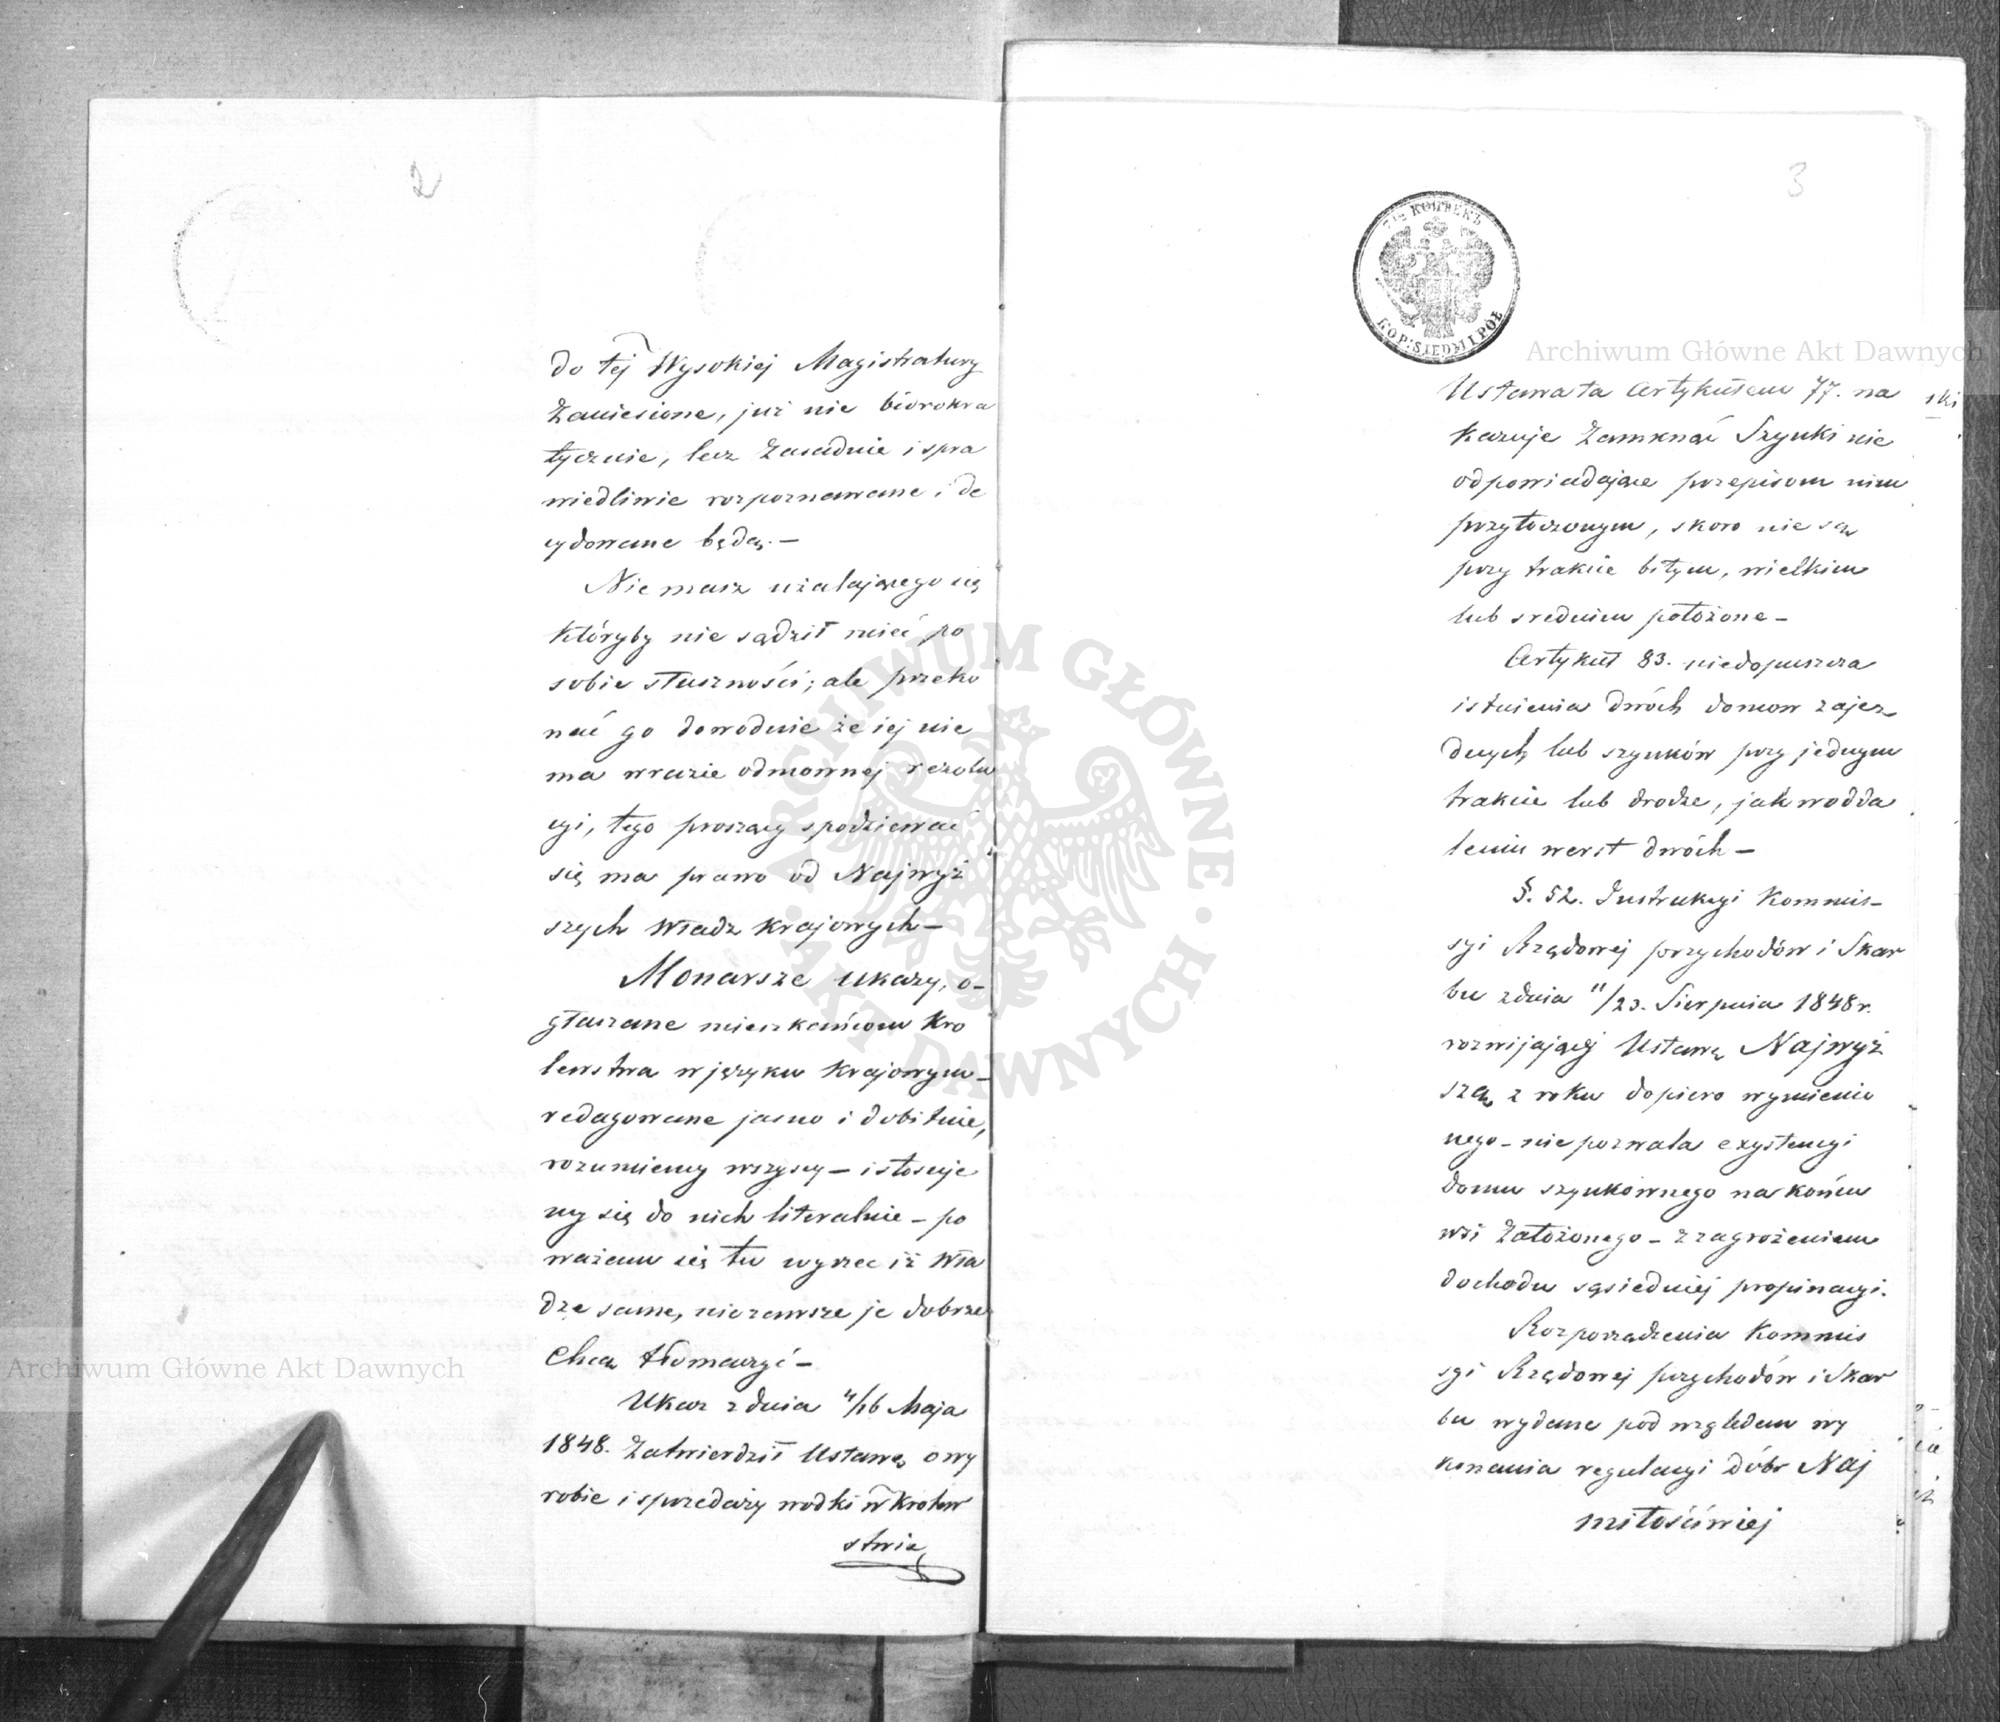 2
do tej Wysokiej Magistratury
zaniesione, już nie biórokra
tycznie, lecz zasadnie i spra
wiedliwie rozpoznawane i de
cydowane będą. —
Nie masz użalającego się
któryby nie sądził mieć po
sobie słuszności; ale przeko
nać go dowodnie że jej nie
ma w razie odmownej rezolu
cyi, tego proszący spodziewać
się ma prawo od Najwyż
szych Władz Krajowych —
Monarsze ukazy, o-
głaszane mieszkańcom Kro
lewstwa w języku Krajowym —
redagowane jasno i dobitnie,
rozumiemy wszyscy — i stosuje
my się do nich literalnie — po
ważam się tu wyrzec iż Wła
dze same, nie zawsze je dobrze
chcą tłomaczyć —
Ukaz z dnia 4/16 Maja
1848. zatwierdził Ustawę o wy
robie i sprzedaży wodki w Krolew
stwie,
3
7½ КОПѢЕКЪ
KOP: SIEDM I PÓŁ
Ustawa ta Artykułem 77. na
kazuje zamknąć Szynki nie
odpowiadające przepisom nim
przytoczonym, skoro nie są
przy trakcie bitym, wielkim
lub srednim położone —
Artykuł 83. niedopuszcza
istnienia dwóch domow zajez
dnych lub szynków przy jednym
trakcie lub drodze, jak w odda
leniu werst dwóch —
§. 52. Instrukcyi Kommis-
syi Rządowej przychodów i Skar
bu z dnia 11/23. Sierpnia 1848 r.
rozwijającej Ustawę Najwyż
szą z roku dopiero wymienio
nego — nie pozwala exystencyi
domu szynkownego na końcu
wsi założonego — z zagrożeniem
dochodu sąsiedniej propinacyi.
Rozporządzenia Kommis
syi Rządowej przychodów i Skar
bu wydane pod względem wy
konania regulacyi dóbr Naj
miłościwiej
Archiwum Główne Akt Dawnych
ARCHIWUM GŁÓWNE · AKT DAWNYCH ·
Archiwum Główne Akt Dawnych